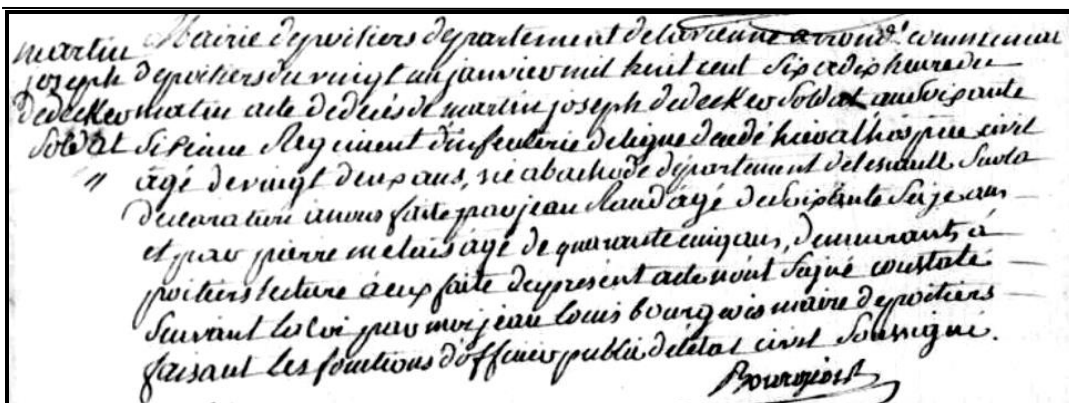 martin
joseph
dedecker
Soldat
"
Mairie de poitiers departement de la vienne arrond.t communal
de poitiers du vingt un janvier mil huit cent Six a dix heure du
matin acte de décès de martin joseph dedecker Soldat au Soixante
Sixieme Regiment d'infenterie de ligne décédé hier a lhospice civil
âgé de vingt deux ans, né a departement de lescault Sur la
declaration a nous faite par jean âgé de Soixante Seize ans
et par pierre melais âgé de quarante cinq ans, demeurants á
poitiers lecture á eux faite du present acte n'ont Signé constaté
Suivant la loi par moi jean louis bourgeois maire de poitiers
faisant les fonctions d'officier public de létat civil Soussigné.
Bourgeois